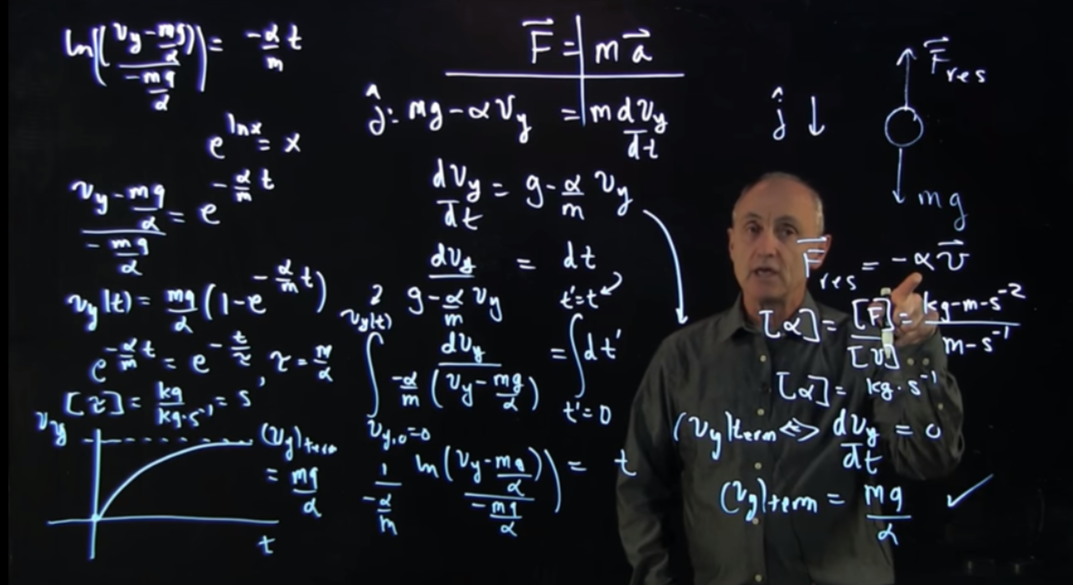 ln((v_y - mg/α)/(-mg/α)) = -α/m t
e^{ln x} = x
(v_y - mg/α)/(-mg/α) = e^{-α/m t}
v_y(t) = mg/α (1 - e^{-α/m t})
e^{-α/m t} = e^{-t/τ}, τ = m/α
[τ] = kg/kg·s⁻¹ = s
v_y
(v_y)term
= mg/α
t
F⃗ = ma⃗
ĵ: mg - αv_y = m dv_y/dt
dv_y/dt = g - α/m v_y
dv_y/(g - α/m v_y) = dt
∫_{v_{y,0}=0}^{v_y(t)} dv_y/(-α/m (v_y - mg/α)) = ∫_{t'=0}^{t'=t} dt'
1/(-α/m) ln((v_y - mg/α)/(-mg/α)) = t
F⃗res
ĵ ↓
mg
F⃗res = -αv⃗
[α] = [F]/[v] = kg-m-s⁻²/m-s⁻¹
[α] = kg·s⁻¹
(v_y)term <=> dv_y/dt = 0
(v_y)term = mg/α ✓